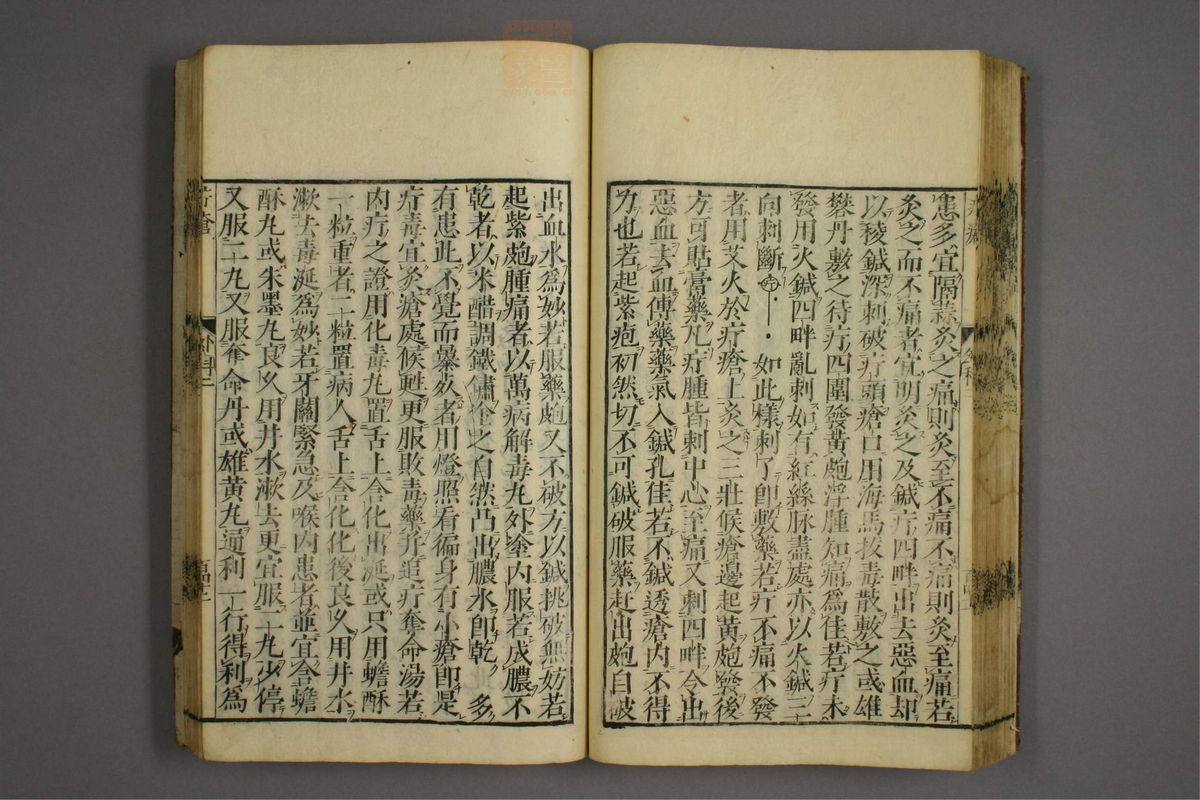 患多宜隔蒜灸之痛則灸至不痛不痛則灸至痛若
灸之而不痛者宜明灸之及鍼疔四畔出去惡血却
以稜鍼深刺破疔頭瘡口用海馬拔毒散敷之或雄
礬丹敷之待疔四圍發黃皰浮腫知痛為佳若疔未
發用火鍼四畔亂刺如有紅絲脉盡處亦以火鍼三十
向刺斷 如此樣刺了即敷藥若疔不痛不發
者用艾火於疔瘡上灸之三壯候瘡邊起黃皰發後
方可貼膏藥凡疔腫皆刺中心至痛又刺四畔令出
惡血去血傅藥藥氣入鍼孔佳若不鍼透瘡內不得
力也若起紫疱初然切不可鍼破服藥赶出皰自破
出血水爲妙若服藥皰又不破方以鍼挑破無妨若
起紫皰腫痛者以萬病解毒丸外塗內服若成膿不
乾者以米醋調鐵鏽塗之自然凸出膿水即乾 多
有患此不覺而暴死者用燈照看徧身有小瘡即是
疔毒宜灸瘡處候甦更服敗毒藥并追疔奪命湯若
內疔之證用化毒丸置舌上含化出涎或只用蟾酥
一粒重者二粒置病人舌上含化化後良久用井水
漱去毒涎爲妙若牙關緊急及喉內患者並宜含蟾
酥丸或朱墨丸良久用井水漱去更宜服二十丸少停
又服二十丸又服奪命丹或雄黄丸通利一行得利爲
疔瘡
外科二